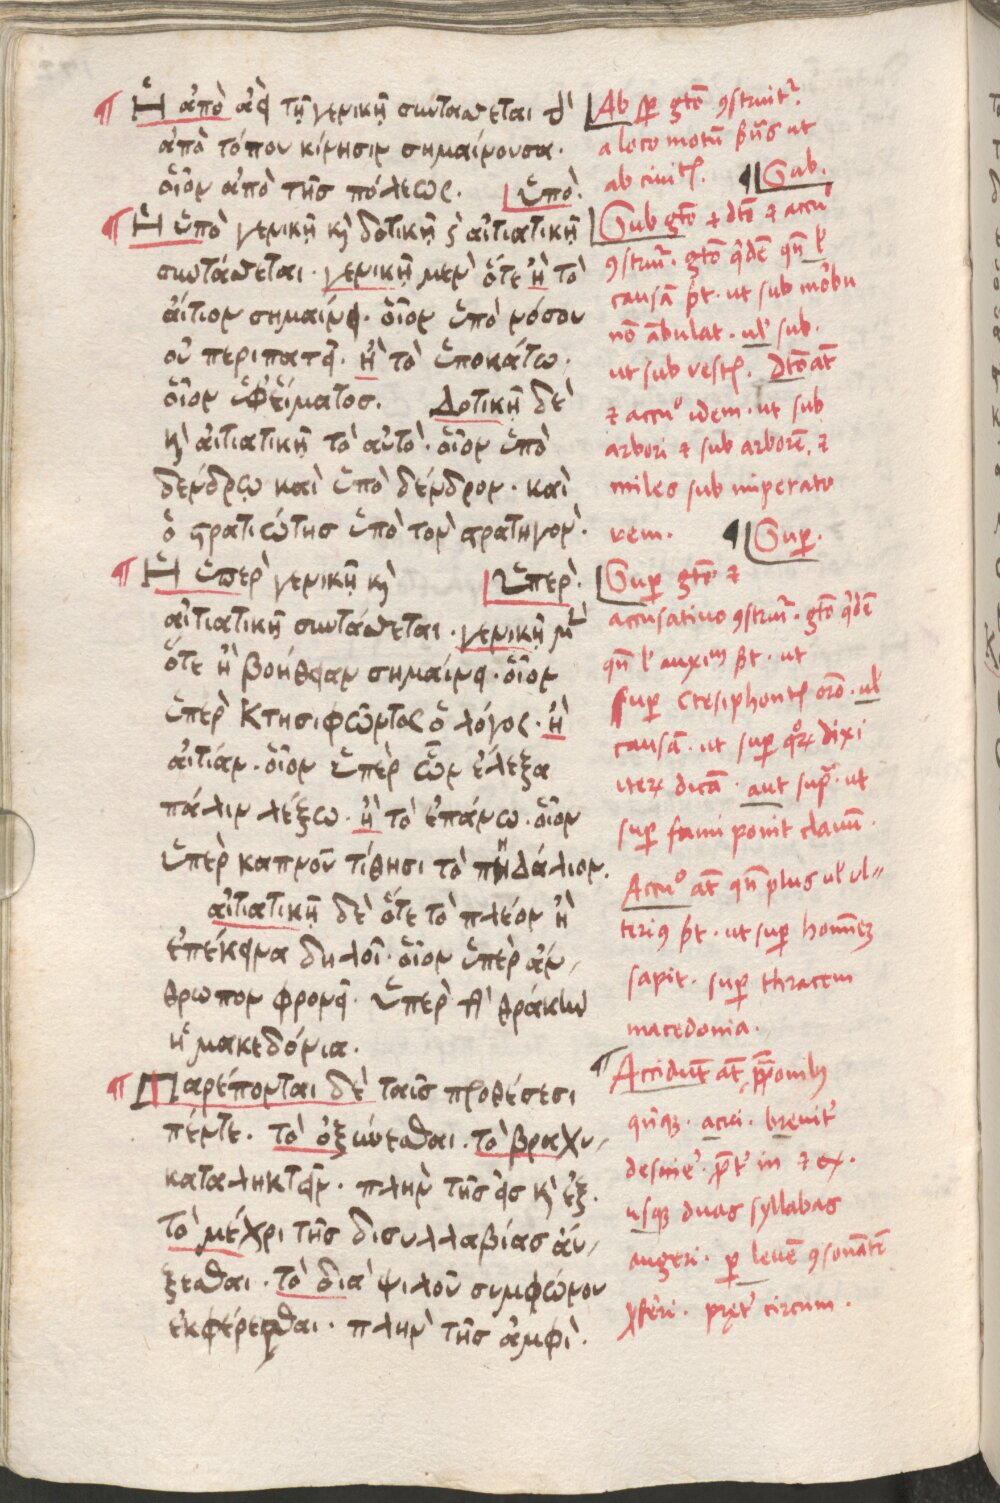 Ἡ ἀπὸ ἀεὶ τῇ γενικῇ συντάσσεται δι
ἀπὸ τόπου κίνησιν σημαίνουσα·
οἷον ἀπὸ τῆς πόλεως. Ὑπὸ.
Ἡ ὑπὸ γενικῇ κὶ δοτικῇ ϛ αἰτιατικῇ
συντάσσεται· γενικῇ μεν ὅτε ἢ τὸ
αἴτιον σημαίνει· οἷον ὑπὸ νόσου
οὐ περιπατεῖ. ἢ τὸ ὑποκάτω.
οἷον ὑφ' εἵματος. Δοτικῇ δὲ
κὶ αἰτιατικῇ τὸ αὐτὸ· οἷον ὑπὸ
δένδρῳ καὶ ὑπὸ δένδρον· καὶ
ὁ στρατιώτης ὑπὸ τὸν στρατηγόν·
Ἡ ὑπερ γενικῇ κὶ Ὑπερ.
αἰτιατικῇ συντάσσεται· γενικῇ μὲν
ὅτε ἢ βοήθειαν σημαίνει· οἷον
ὑπὲρ Κτησιφῶντος ὁ λόγος· ἢ
αἰτίαν· οἷον ὑπὲρ ὧν ἔλεξα
πάλιν λέξω· ἢ τὸ ἐπάνω· οἷον
ὑπὲρ καπνοῦ τίθησι τὸ πηδάλιον.
αἰτιατικῇ δὲ ὅτε τὸ πλέον ἢ
ἐπέκεινα δηλοῖ· οἷον ὑπὲρ ἄν,
θρωπον φρονεῖ. Ὑπερ τὴν θράκην
ἡ μακεδόνια.
Παρέπονται δὲ ταῖς προθέσεσι
πέντε. τὸ ὀξύνεσθαι. τὸ βραχυ,
καταληκτεῖν· πλὴν τῆς εἰς κὶ ἐξ.
τὸ μέχρι τῆς δισυλλαβίας αὔ,
ξεσθαι. τὸ διὰ ψιλοῦ συμφώνου
ἐκφέρεσθαι· πλὴν τῆς ἀμφὶ.
Ab sp gtõ ɔstruitr.
a loco motũ ut
ab ciuit. Sub.
Sub gtõ ⁊ dtõ ⁊ accuo
ɔstruir. gtõ qdẽ qñ l
causã pt. ut sub morbu
nõ ãbulat. ul sub.
ut sub veste. Dtõ at
⁊ accuo idem. ut sub
arbori ⁊ sub arborẽ, ⁊
miles sub imperato
rem. Sup.
Sup gtõ ⁊
accusatiuo ɔstruir. gtõ qdẽ
qñ l auxim pt. ut
sup Ctesiphont oro. ul
causã. ut sup qr dixi
iter dicã. aut supra. ut
sup fumi ponit clauũ.
Accuo at qñ plus ul ul
terius pt. ut sup hominẽ
sapit. sup thracem
macedonia.
Accidunt at
quinq. acui. breuit
desinere. prt in ⁊ ex.
usq duas syllabas
augeri. p leuẽ ɔsonãtẽ
pret circum.